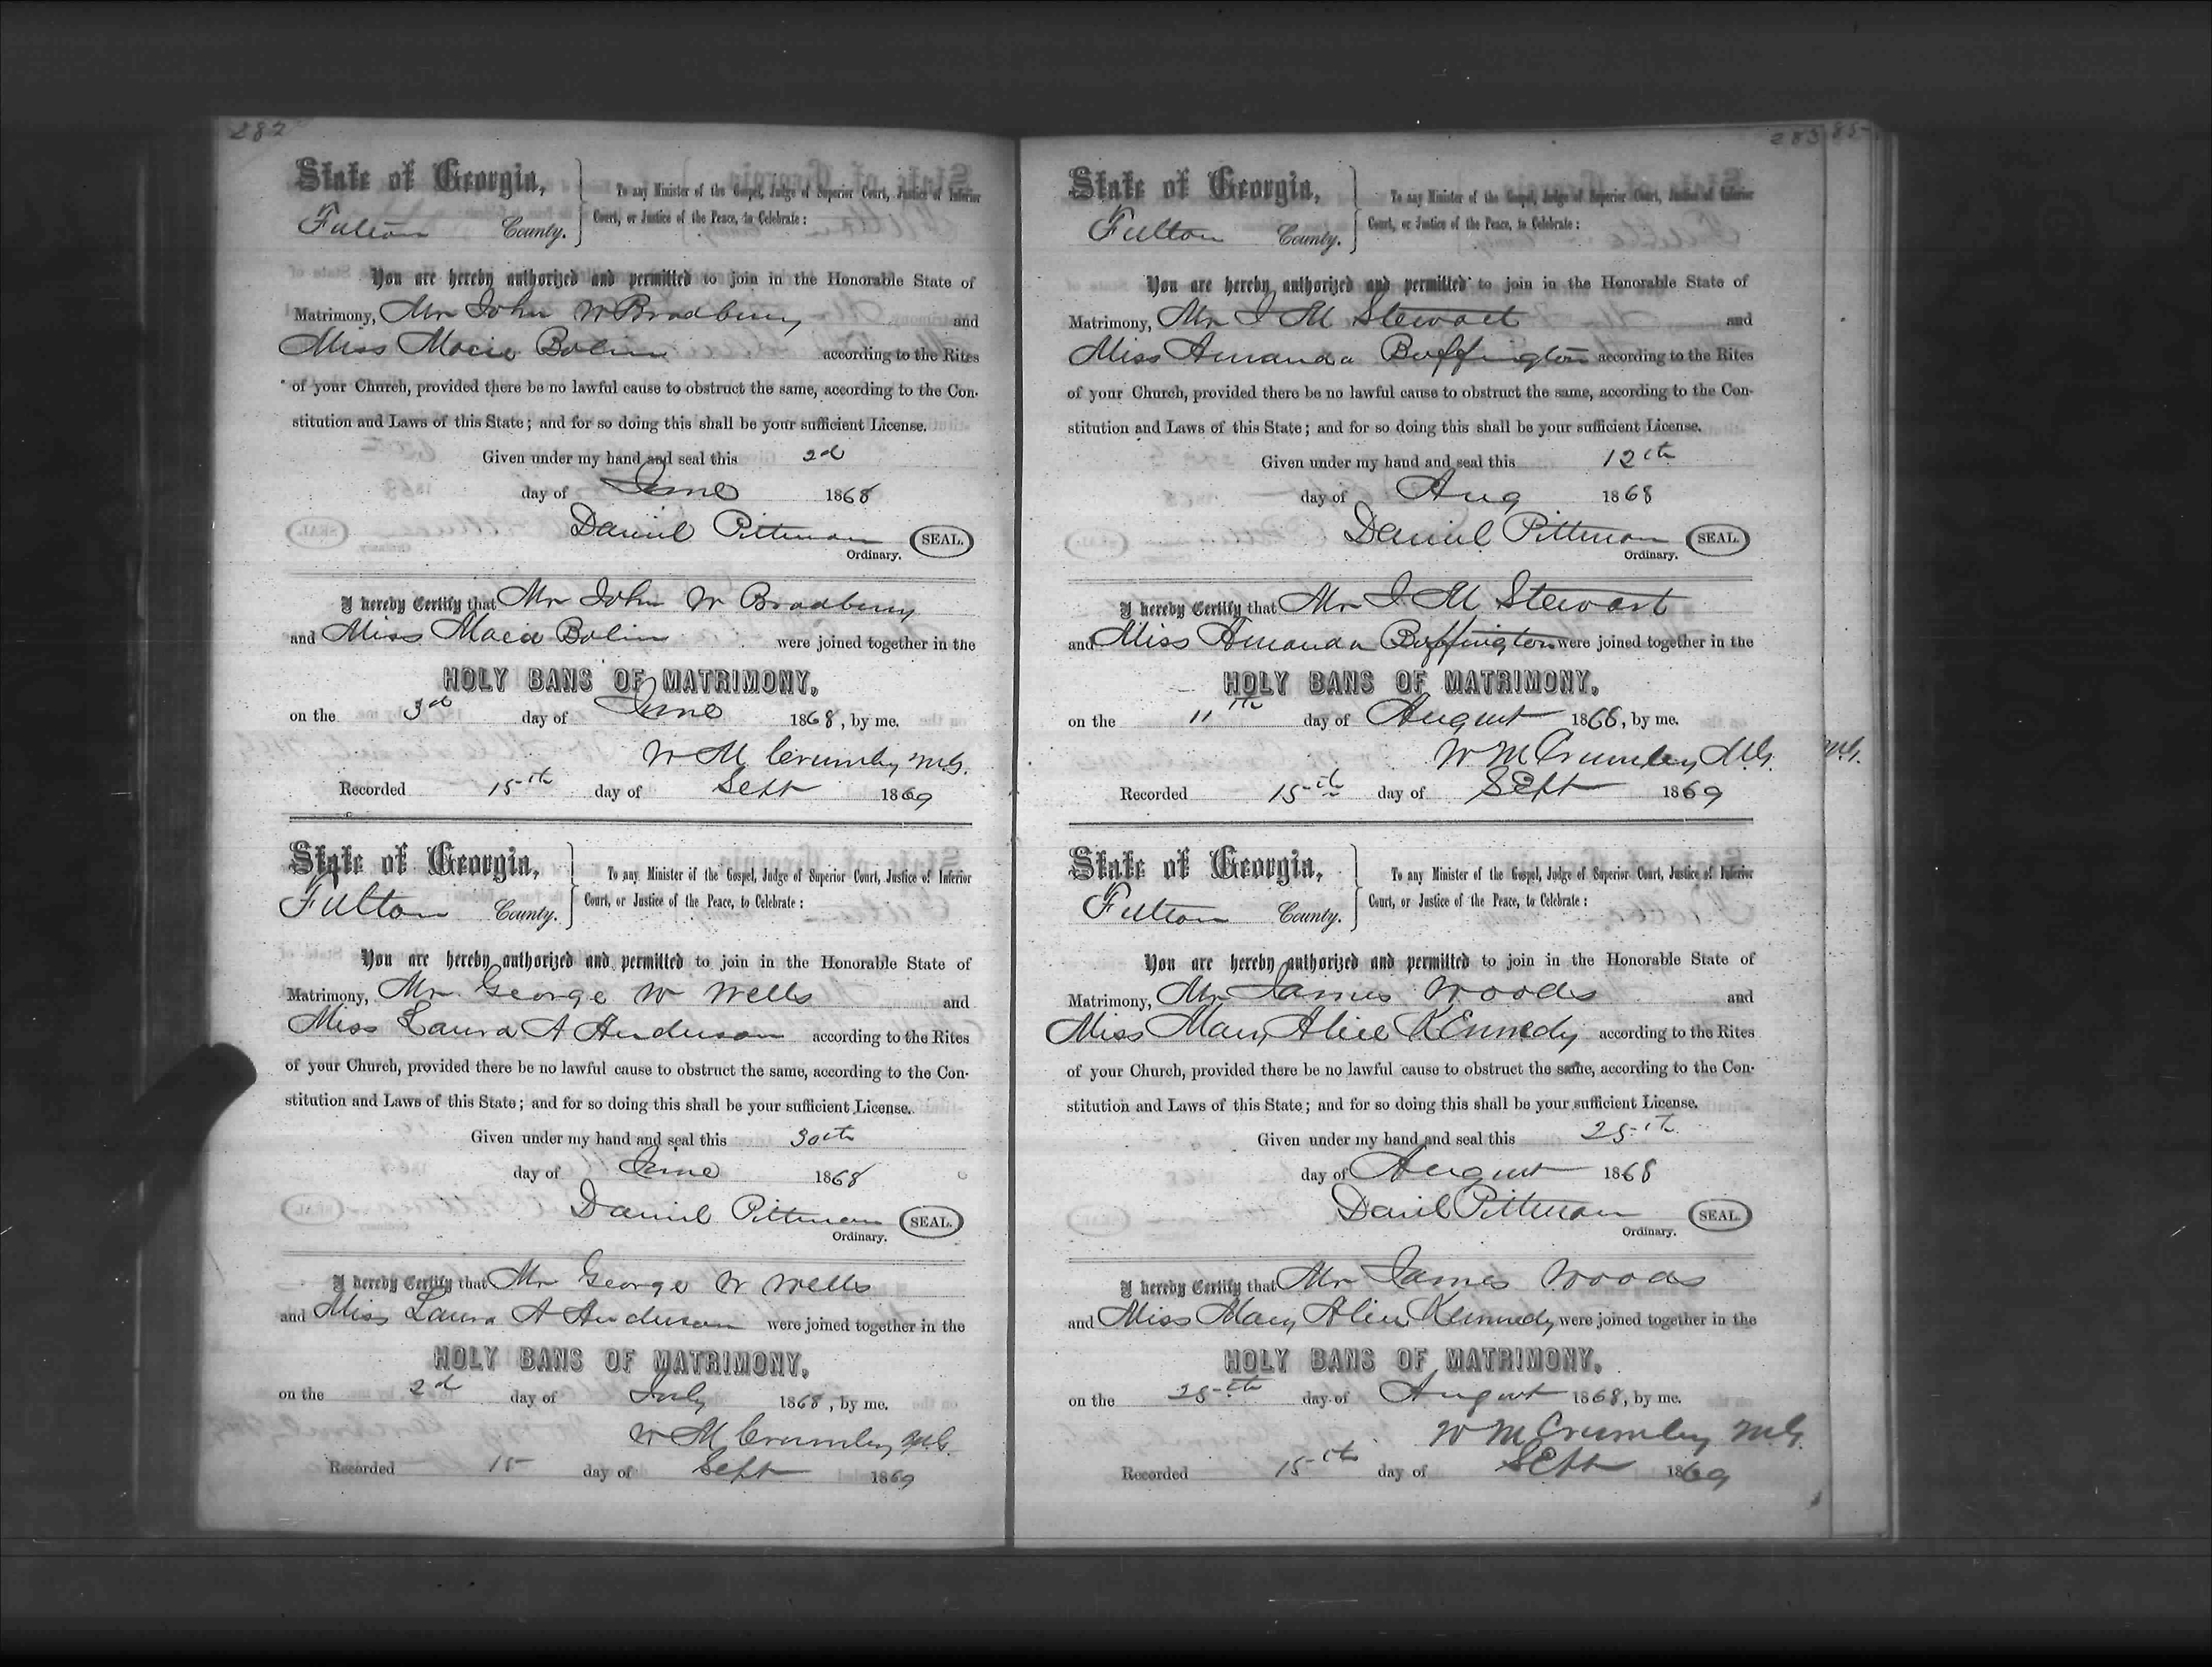 282
State of Georgia,
Fulton County.
To any Minister of the Gospel, Judge of Superior Court, Justice of Inferior
Court, or Justice of the Peace, to Celebrate:
You are hereby authorized and permitted to join in the Honorable State of
Matrimony, Mr John W Bradbury and
Miss Macie Bolin according to the Rites
of your Church, provided there be no lawful cause to obstruct the same, according to the Con-
stitution and Laws of this State; and for so doing this shall be your sufficient License.
Given under my hand and seal this 2d
day of June 1868
Daniel Pittman SEAL.
Ordinary.
I hereby Certify that Mr John W Bradbury
and Miss Macie Bolin were joined together in the
HOLY BANS OF MATRIMONY,
on the 3d day of June 1868, by me.
W M Crumley M.G.
Recorded 15th day of Sept 1869
State of Georgia,
Fulton County.
To any Minister of the Gospel, Judge of Superior Court, Justice of Inferior
Court, or Justice of the Peace, to Celebrate:
You are hereby authorized and permitted to join in the Honorable State of
Matrimony, Mr George W Wells and
Miss Laura A Anderson according to the Rites
of your Church, provided there be no lawful cause to obstruct the same, according to the Con-
stitution and Laws of this State; and for so doing this shall be your sufficient License.
Given under my hand and seal this 30th
day of June 1868
Daniel Pittman SEAL.
Ordinary.
I hereby Certify that Mr George W Wells
and Miss Laura A Anderson were joined together in the
HOLY BANS OF MATRIMONY,
on the 2d day of July 1868, by me.
W M Crumley M.G.
Recorded 15 day of Sept 1869
283 85
State of Georgia,
Fulton County.
To any Minister of the Gospel, Judge of Superior Court, Justice of Inferior
Court, or Justice of the Peace, to Celebrate:
You are hereby authorized and permitted to join in the Honorable State of
Matrimony, Mr I M Stewart and
Miss Amanda Buffington according to the Rites
of your Church, provided there be no lawful cause to obstruct the same, according to the Con-
stitution and Laws of this State; and for so doing this shall be your sufficient License.
Given under my hand and seal this 12th
day of Aug 1868
Daniel Pittman SEAL.
Ordinary.
I hereby Certify that Mr I M Stewart
and Miss Amanda Buffington were joined together in the
HOLY BANS OF MATRIMONY,
on the 11th day of August 1868, by me.
W M Crumley M.G. M.G.
Recorded 15th day of Sept 1869
State of Georgia,
Fulton County.
To any Minister of the Gospel, Judge of Superior Court, Justice of Inferior
Court, or Justice of the Peace, to Celebrate:
You are hereby authorized and permitted to join in the Honorable State of
Matrimony, Mr James Woods and
Miss Mary Alice Kennedy according to the Rites
of your Church, provided there be no lawful cause to obstruct the same, according to the Con-
stitution and Laws of this State; and for so doing this shall be your sufficient License.
Given under my hand and seal this 25th
day of August 1868
Daniel Pittman SEAL.
Ordinary.
I hereby Certify that Mr James Woods
and Miss Mary Alice Kennedy were joined together in the
HOLY BANS OF MATRIMONY,
on the 25th day of August 1868, by me.
W M Crumley M.G.
Recorded 15th day of Sept 1869